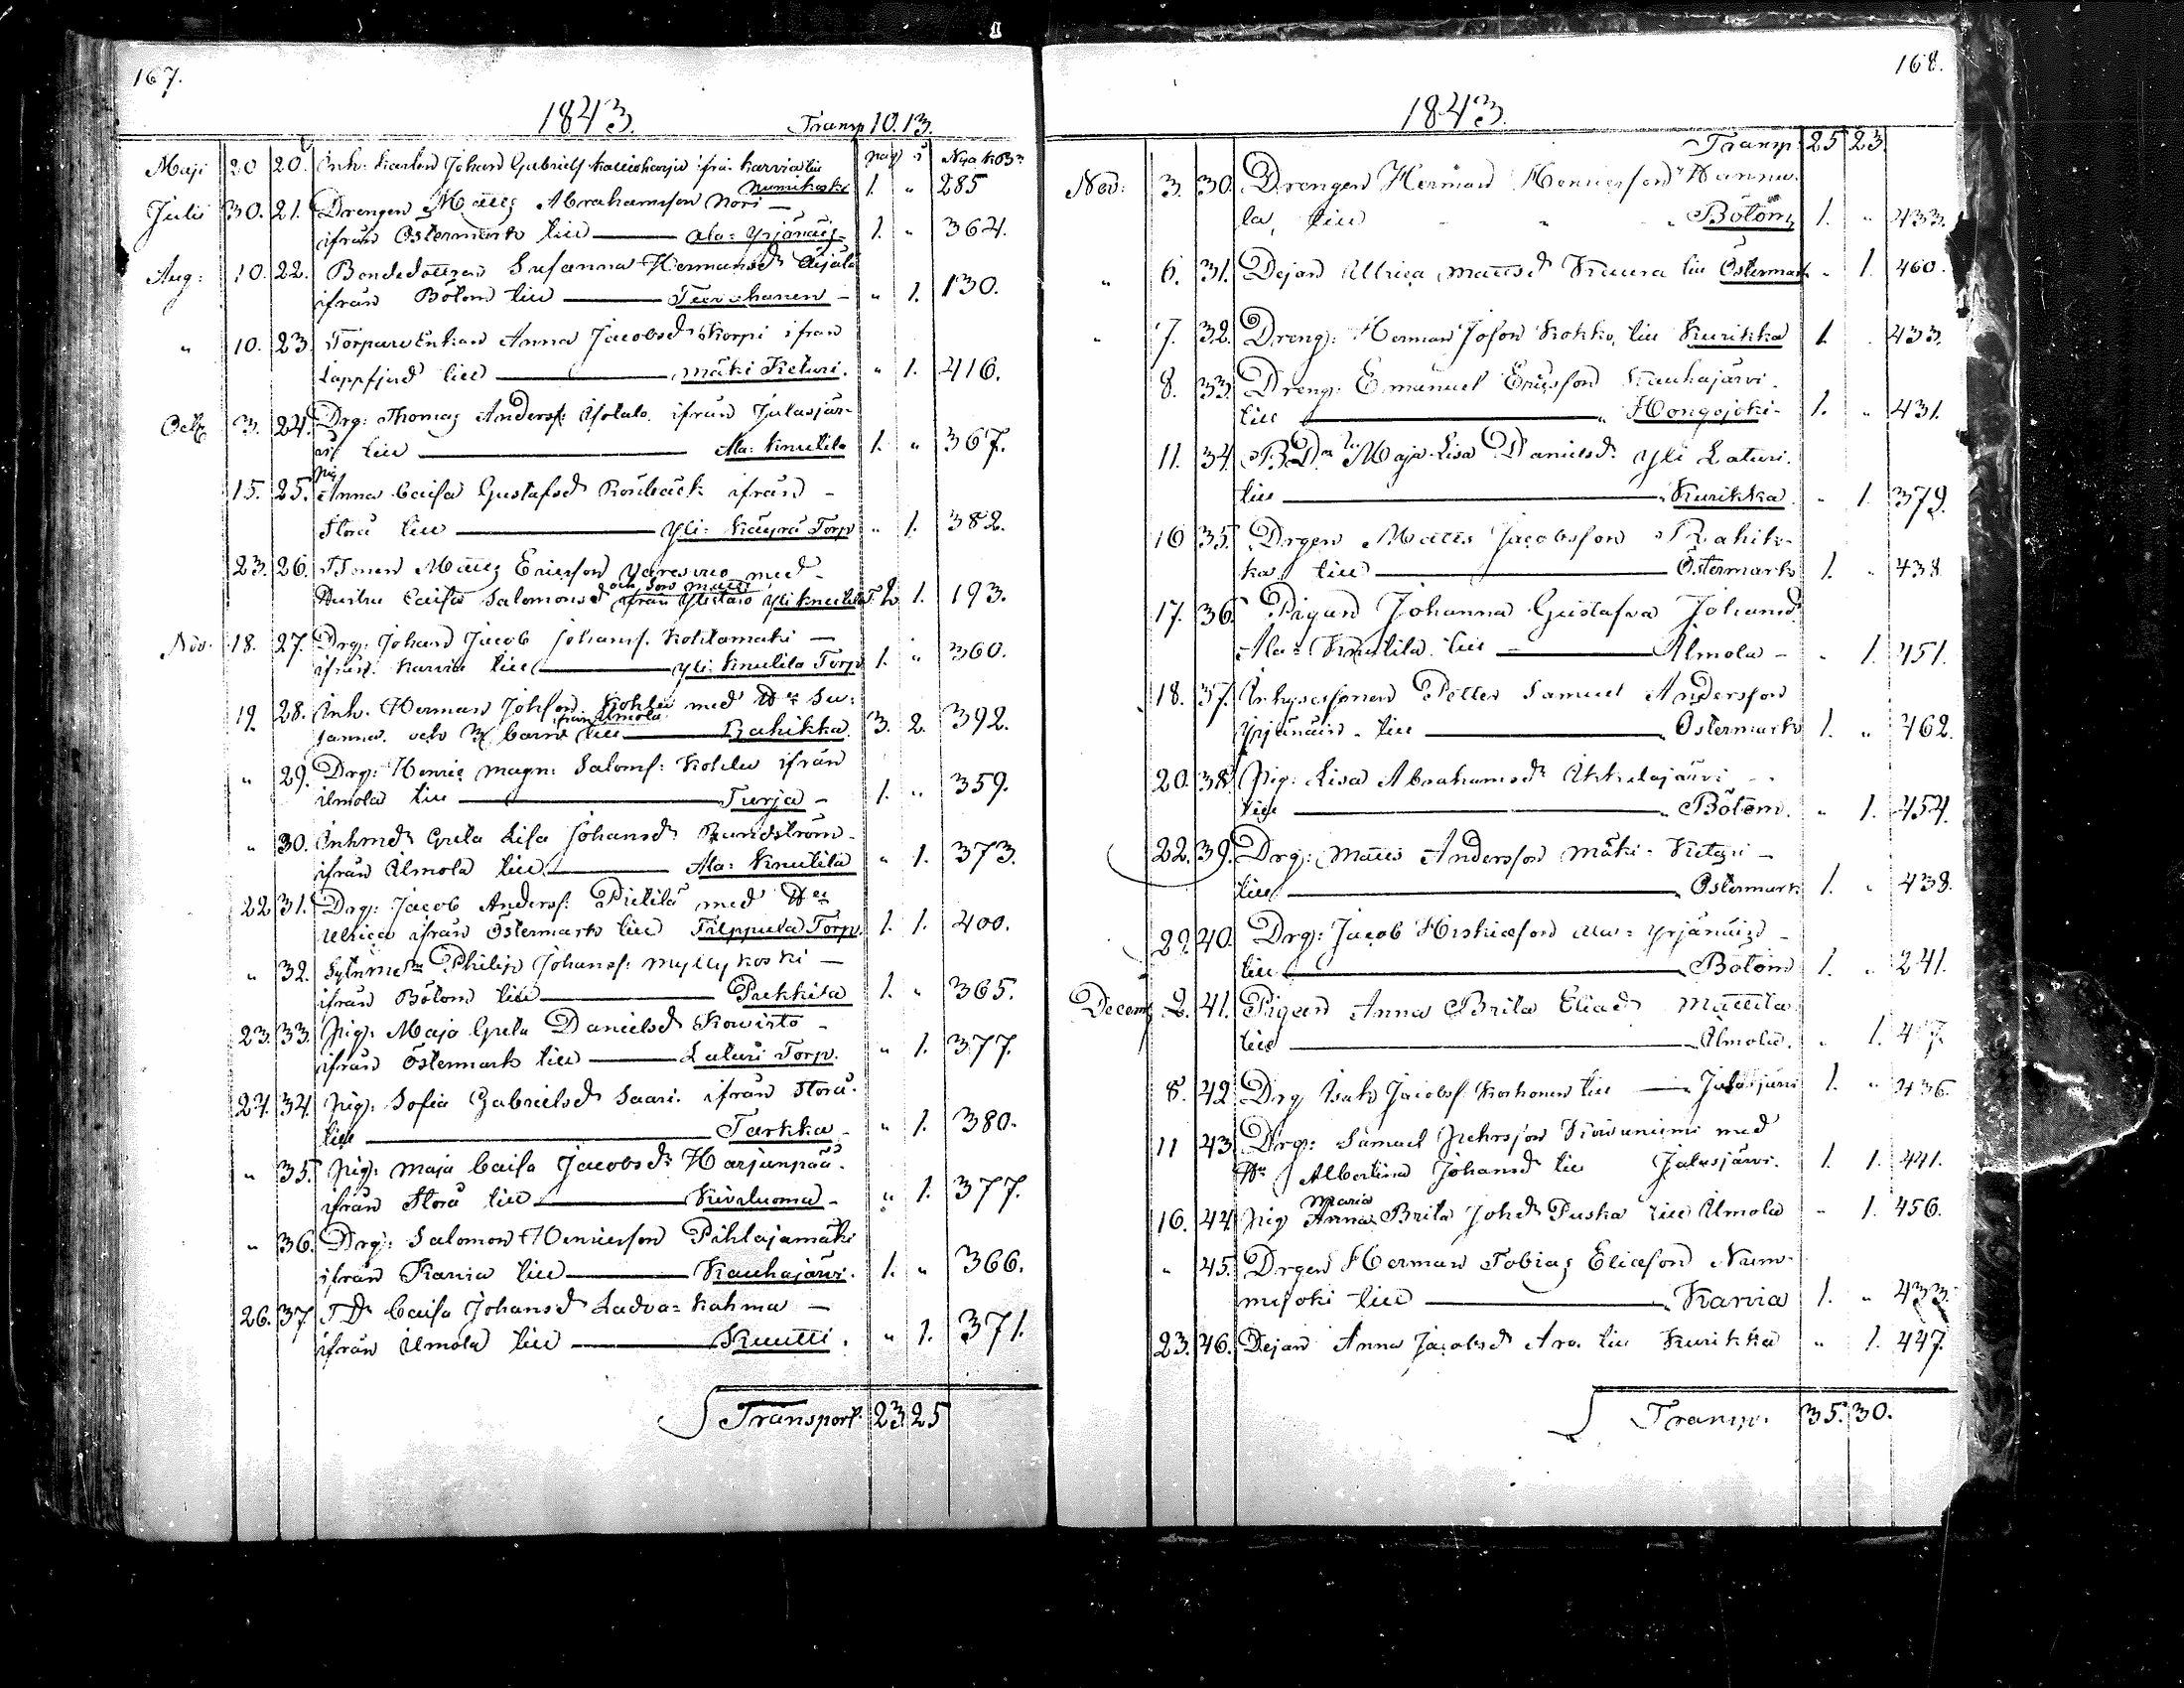 167.
1843.
Transp 10. 13.
Maji 20 20. Inh: Karlen Johan Gabrielss Kallioharju ifrån Karvia till
Nya K.B.
Numikoski 1. " 285
Julii 30. 21. Drengen Matts Abrahamsson Nori —
ifrån Östermark till — Ala-Yrjänäis- 1. " 364.
Aug: 10. 22. Bondedottren Susanna Hermansdr Äijälä
ifrån Bötom till — - " 1. 130.
" 10. 23. Torpare Enkan Anna Jacobsdr Korpi ifrån
Lappfjerd till — Mäki Keturi. " 1. 416.
Octb 3. 24. Drg: Thomas Anderss: Ifrån Jalasjär-
vi till — Ala-Knuutila 1. " 367.
15. 25. Pig Anna Caisa Gustafsdr Rönbäck ifrån -
Storå till — Yli-Käyrä Torp " 1. 382.
23. 26. Matts Ericsson med -
Hustru Caisa Salomonsdr och Son Matts
ifrån Ylistaro Yli Knuutila T. 2. 1. 193.
Nov. 18. 27. Drg: Johan Jacob Johanss. Kohtamäki —
ifrån Karvia till — Yli-Knuutila Torp 1. " 360.
19. 28. Inh. Herman Johsson Kohlu med Hu Su-
sanna och 3 barn ifrån Ilmola till — Rahikka. 3. 2. 392.
" 29. Drg: Henric Magn: Salomss: Kohlu ifrån
Ilmola till — Turja - 1. " 359.
" 30. Inhmdr Greta Lisa Johansdr Rundström -
ifrån Ilmola till — Ala-Knuutila " 1. 373.
22 31. Drg: Jacob Anderss: Pietilä med Hu
Ulrica ifrån Östermark till Filppula Torp. 1. 1. 400.
" 32. Philip Johanss: Myllykoski —
ifrån Bötom till — Pukkila 1. " 365.
23. 33. Pig: Maja Greta Danielsdr Kowisto -
ifrån Östermark till — Laturi Torp. " 1. 377.
27. 34. Pig: Sofia Gabrielsdr Saari ifrån Storå.
till — Tarkka - " 1. 380.
" 35. Pig: Maja Caisa Jacobsdr Harjunpää.
ifrån Storå till — Kiviluoma - " 1. 377.
" 36. Drg: Salomon Henricsson Pihlajamäki
ifrån Karvia till — Kauhajärvi. 1. " 366.
26. 37 T.Dr Caisa Johansdr Ladva-Kahma —
ifrån Ilmola till — Kuutti. " 1. 371.
Transport. 23 25
168.
1843.
Transp. 25 23.
Nov: 3. 30. Drengen Herman Henricsson Hannu-
la, till " " Bötom 1. " 433.
" 6. 31. Dejan Ulrica Mattsdr Knuura till Östermark " 1. 460.
" 7. 32. Dreng: Herman Josson Kokko, till Kurikka 1. 433.
8. 33. Dreng: Emanuel Ericsson Kauhajärvi.
till — Hongojoki - 1. " 431.
11. 34. B.Dr Maja Lisa Danielsdr Yli Laturi.
till — Kurikka. " 1. 379.
16 35. Drgen Matts Jacobsson Rahik-
ka till — Östermark 1. " 438
17. 36. Pigan Johanna Gustafva Johansd.
Ala-Knuutila till — Ilmola - " 1. 451.
18. 37. Petter Samuel Andersson
Yrjänäin till — Östermark 1. " 462.
20. 38. Pig: Lisa Abrahamsdr Ikkelajärvi -
till — Bötom. " 1. 454.
22. 39. Drg: Matts Andersson Mäki-Keturi -
till — Östermark 1. " 438.
29. 40. Drg: Jacob Hiskiasson Ala-Yrjänäis -
till — Bötom 1. " 241.
Decemb 2. 41. Pigan Anna Brita Eliadr Mattila.
till — Ilmola. " 1.
8. 42 Drg Isak Jacobss. Korhonen till — Jalasjärvi 1. " 436.
11 43. Drg: Samuel Pehrsson Kowaniemi med
Hu Albertina Johansdr till Jalasjärvi. 1. 1. 441.
16. 44. Pig Maria Anna Brita Johdr Puska till Ilmola " 1. 456.
" 45. Drgen Herman Tobias Eliasson Num-
mijoki till — Karvia 1. " 433.
23. 46. Dejan Anna Jacobsdr Aro. till Kurikka " 1. 447.
Transp. 35. 30.